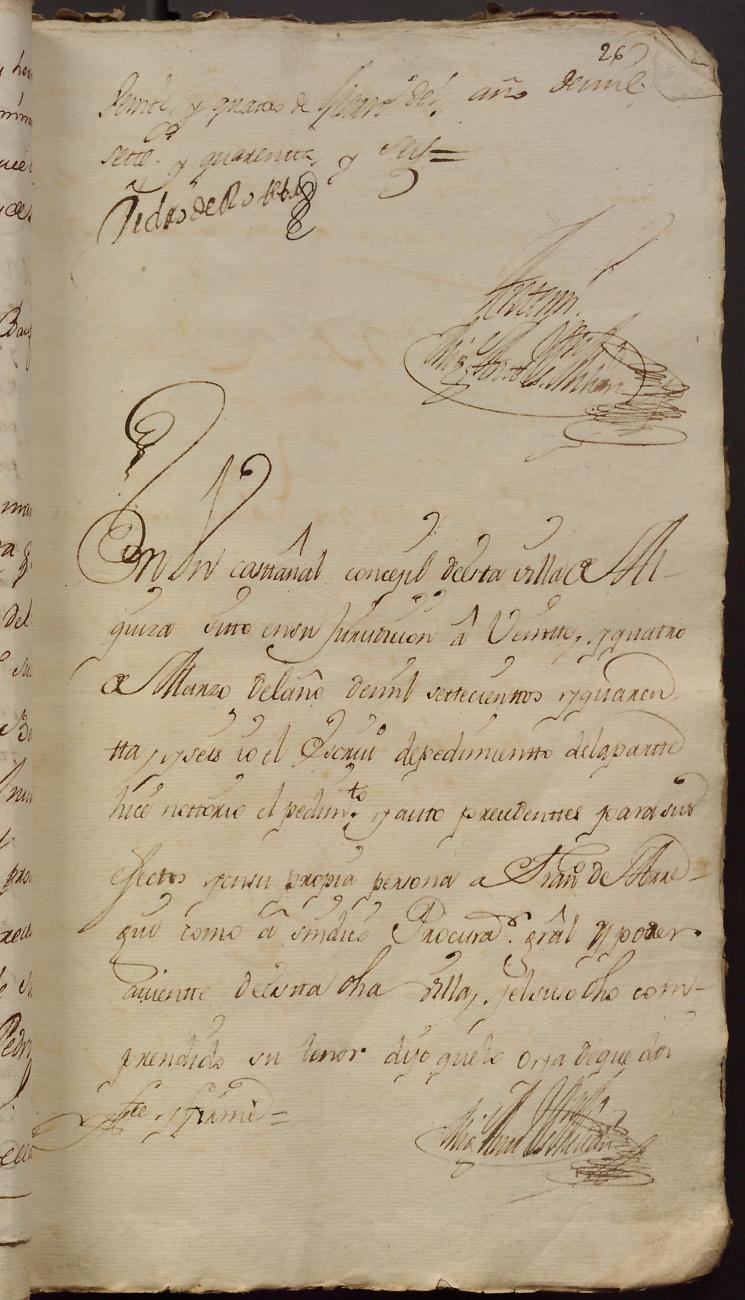 26
Veinte, y quatro de Marzo del año de mil
settos. y quarenta, y seis =
Pedro de
Antemi.
En Un castañal concejil de esta villa de Al-
quiza sitto en su Jurisdicion â Veintte, y quatro
de Marzo del año de mil settecienttos y quaren
tta, y seis io el Escriuo de pedimientto de la partte
hice nottorio el pedimto. y auto precedenttes para sus
efectos y en su propia persona a Franco de
que como â sindico Procurador. gral y poder
auientte de esta dha Villa, y el suso dho com-
prendido su tenor dijo que lo oya de que doi
fee, y firmé =